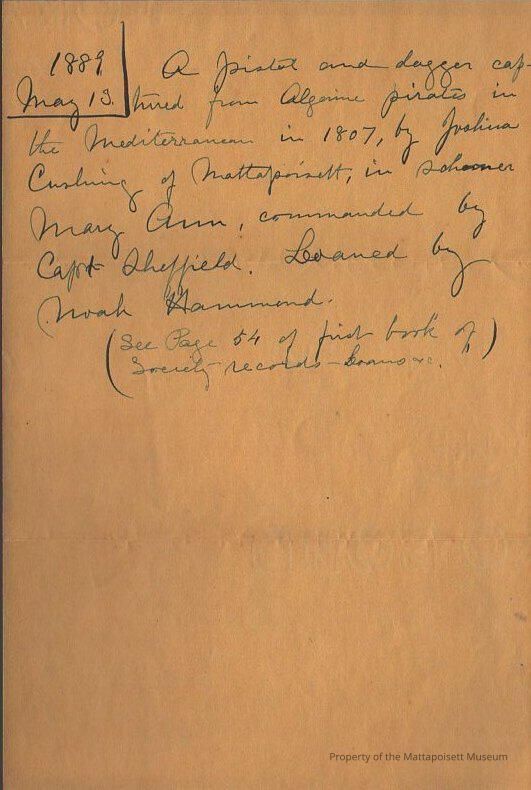 1889
May 13.
A pistol and dagger cap-
tured from Algerine pirates in
the Mediterranean in 1807, by Joshua
Cushing of Mattapoisett, in schooner
Mary Ann, commanded by
Capt Sheffield. Loaned by
Noah Hammond.
(See Page 54 of first book of
Society records - Loans &c.")
Property of the Mattapoisett Museum